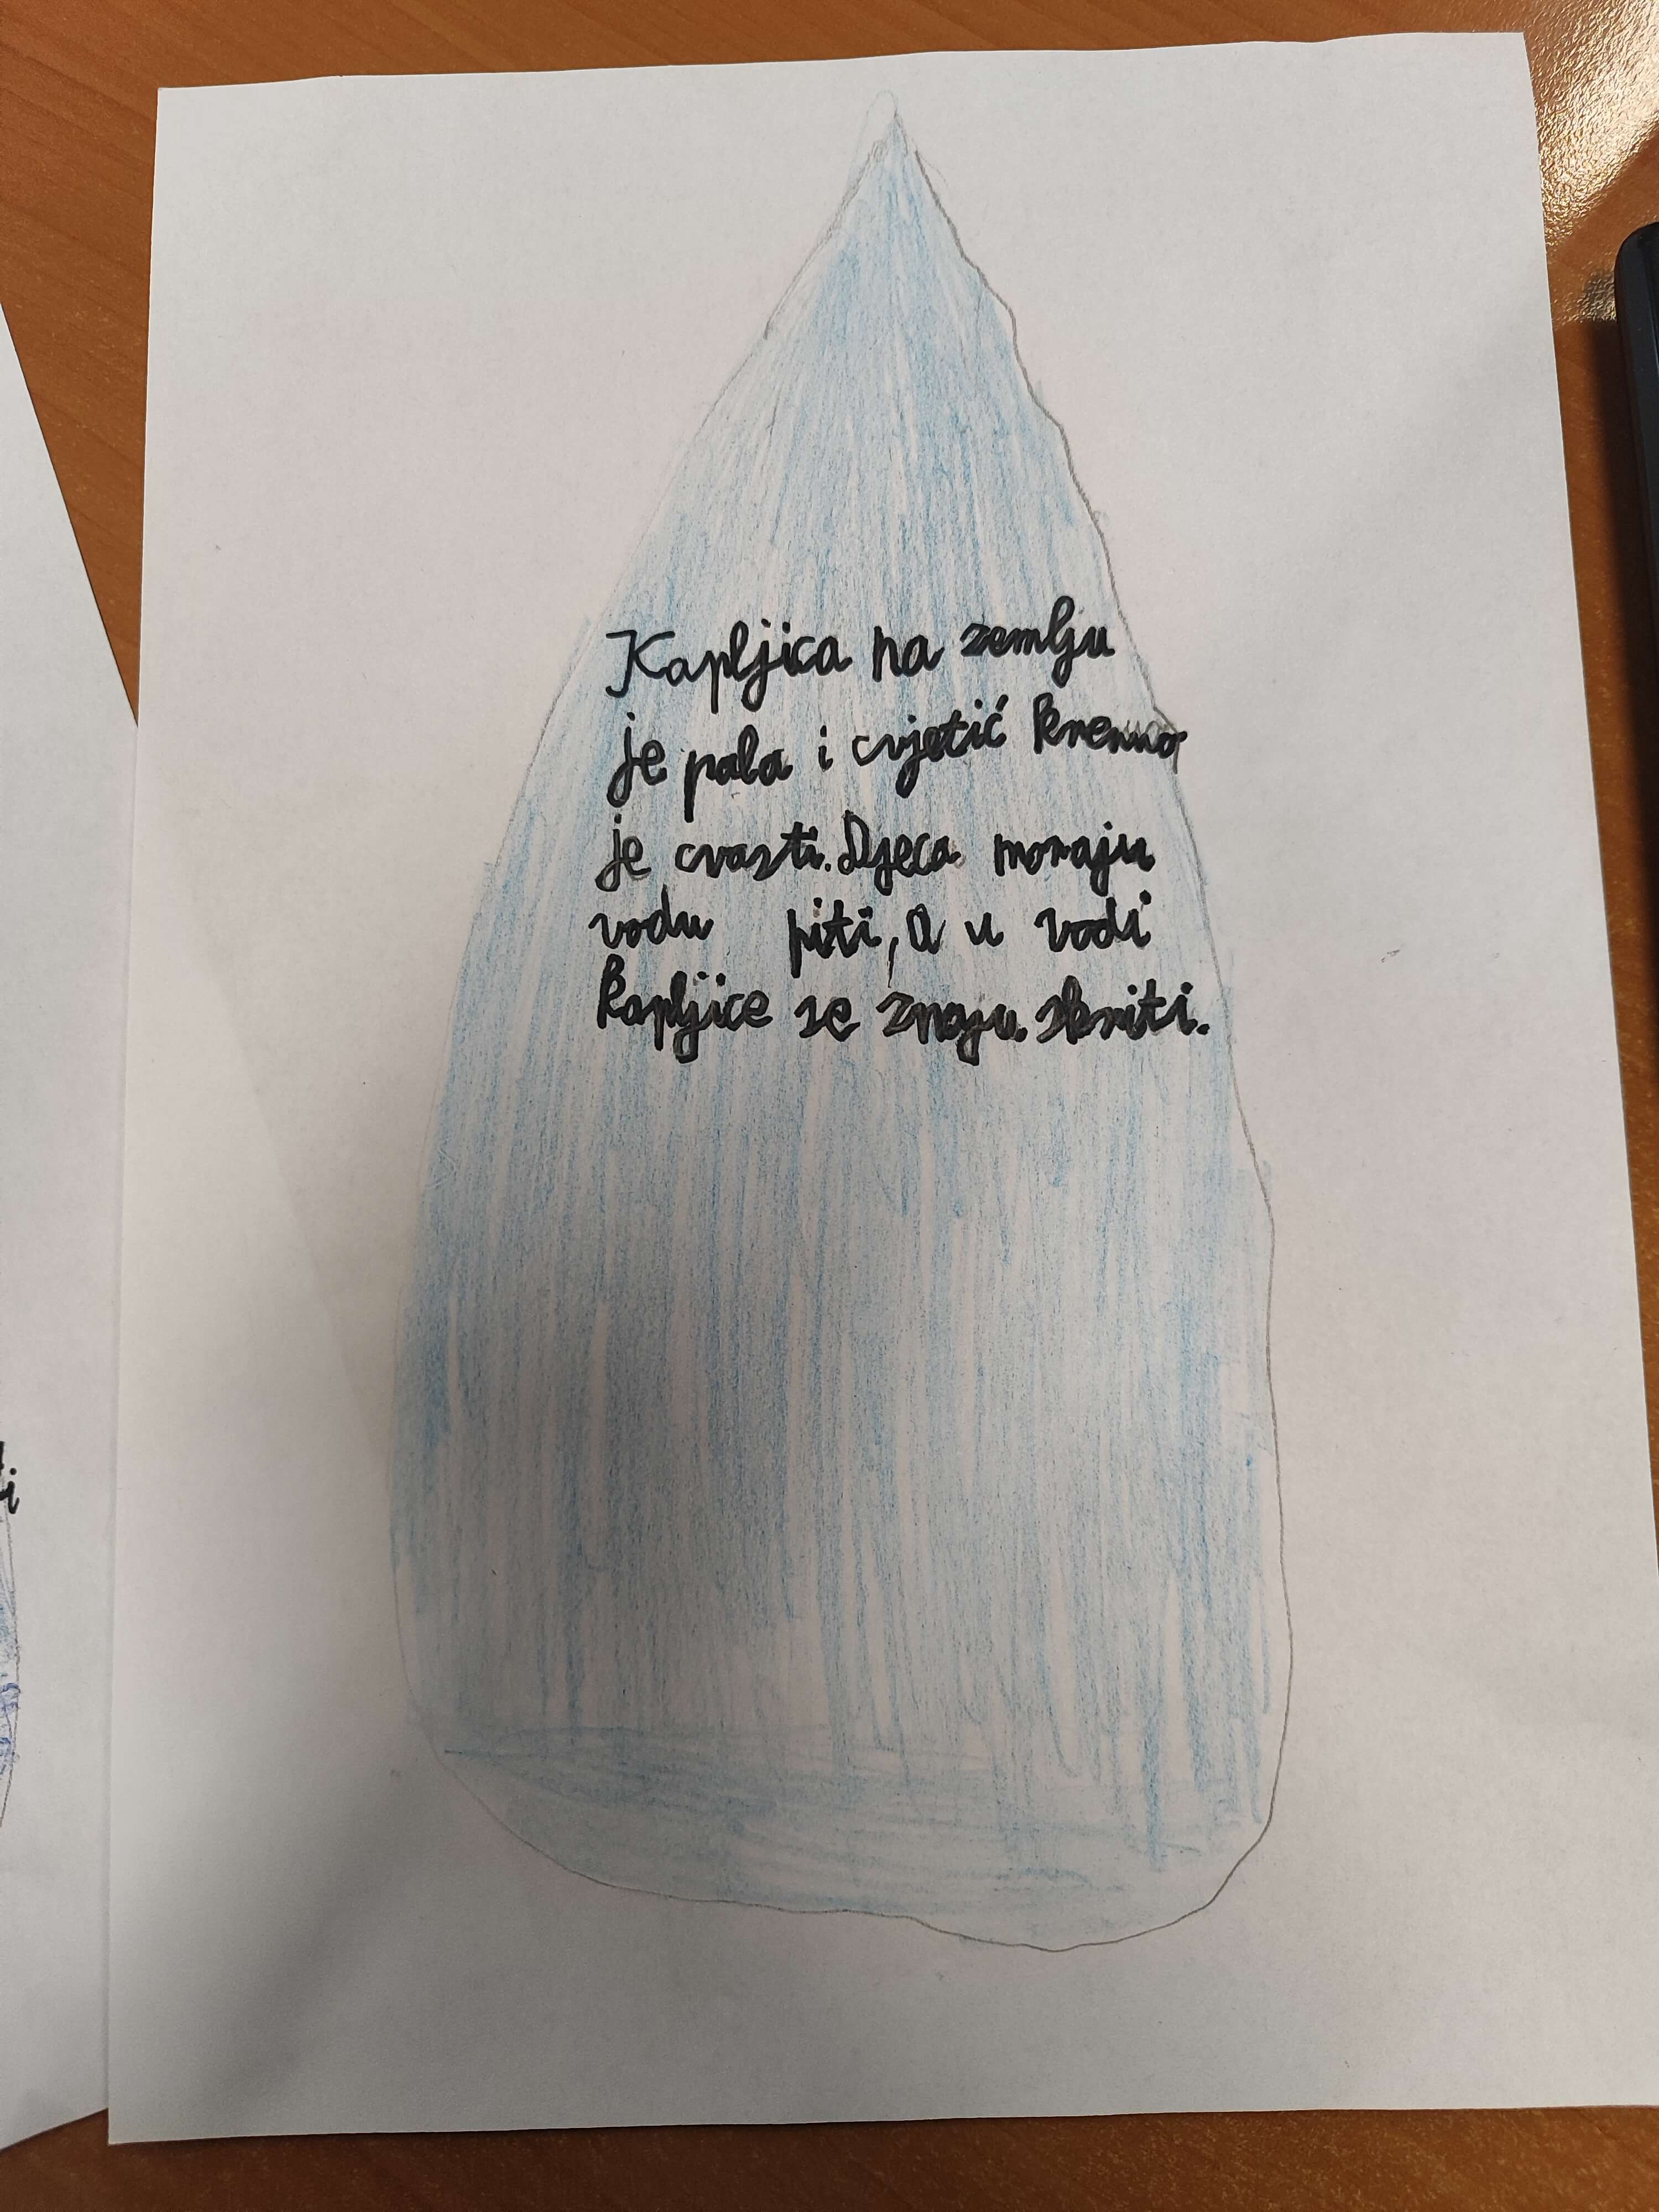 Kapljica na zemlju
je pala i cvjetić krenuo
je cvasti. Djeca moraju
vodu piti, a u vodi
kapljice se znaju skriti.